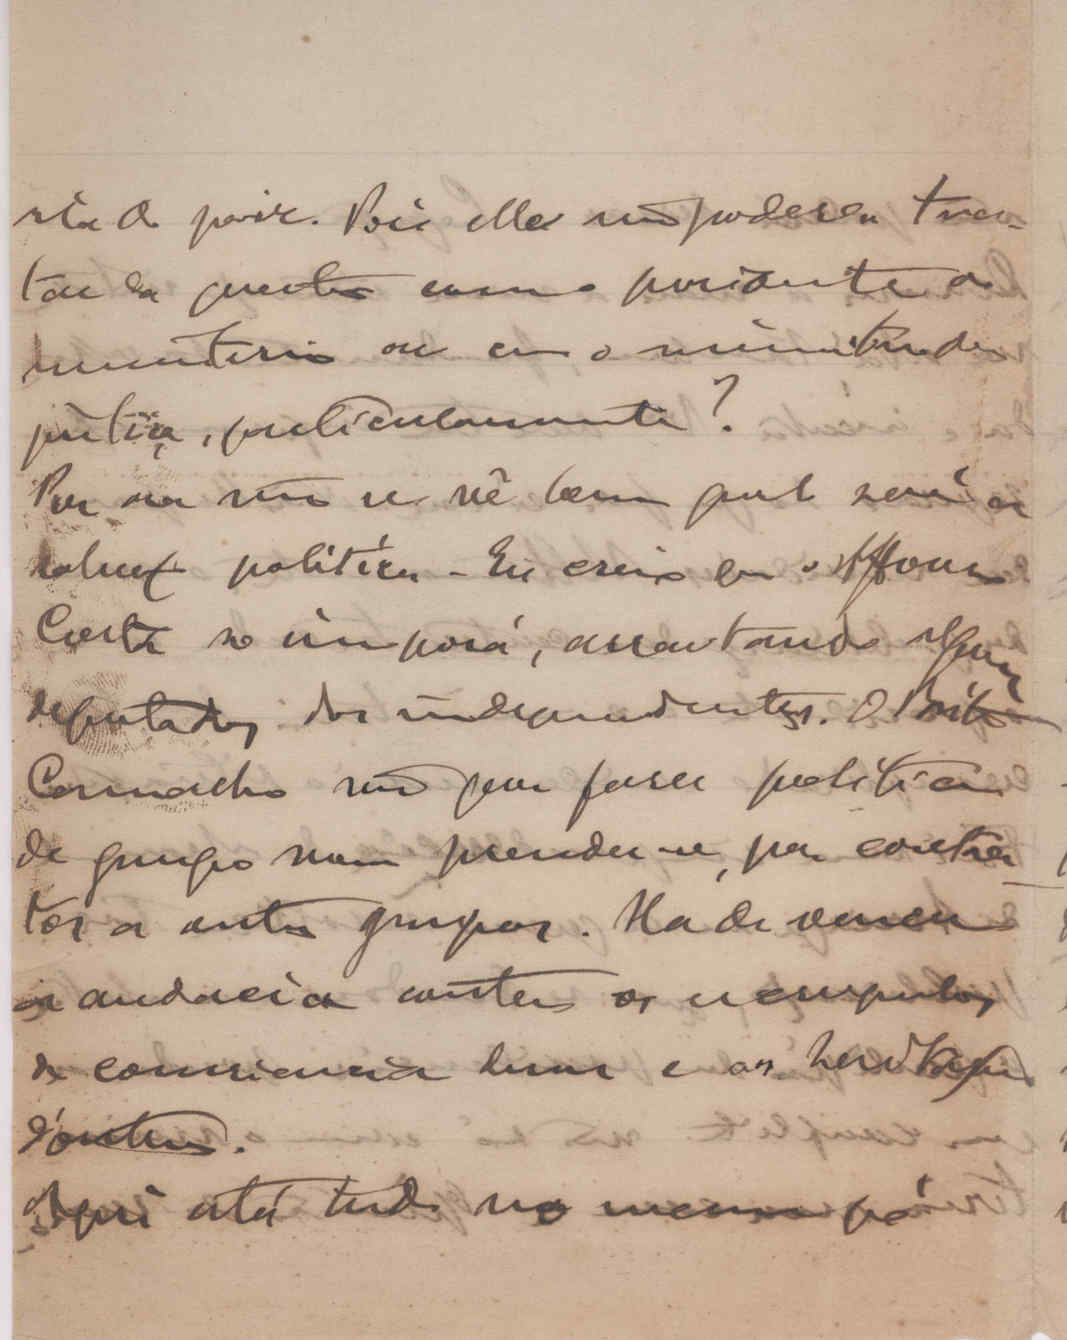 do paiz. Pois elle não poderia tra-
tar da questão como presidente do
ministerio ou como ministro da
justiça, particularmente?
Por ora não se vê bem qual será a
solução politica - Eu creio que o Affonso
Costa se imporá, arrastando alguns
deputados dos independentes. O Brito
Camacho não quer fazer politica
de grupo nem prender-se, por contra-
tos a outros grupos. Ha de vencer
a audacia contra os escrupulos
de consciencia duns e as hesitações
d'outros.
Aqui está tudo no mesmo pé